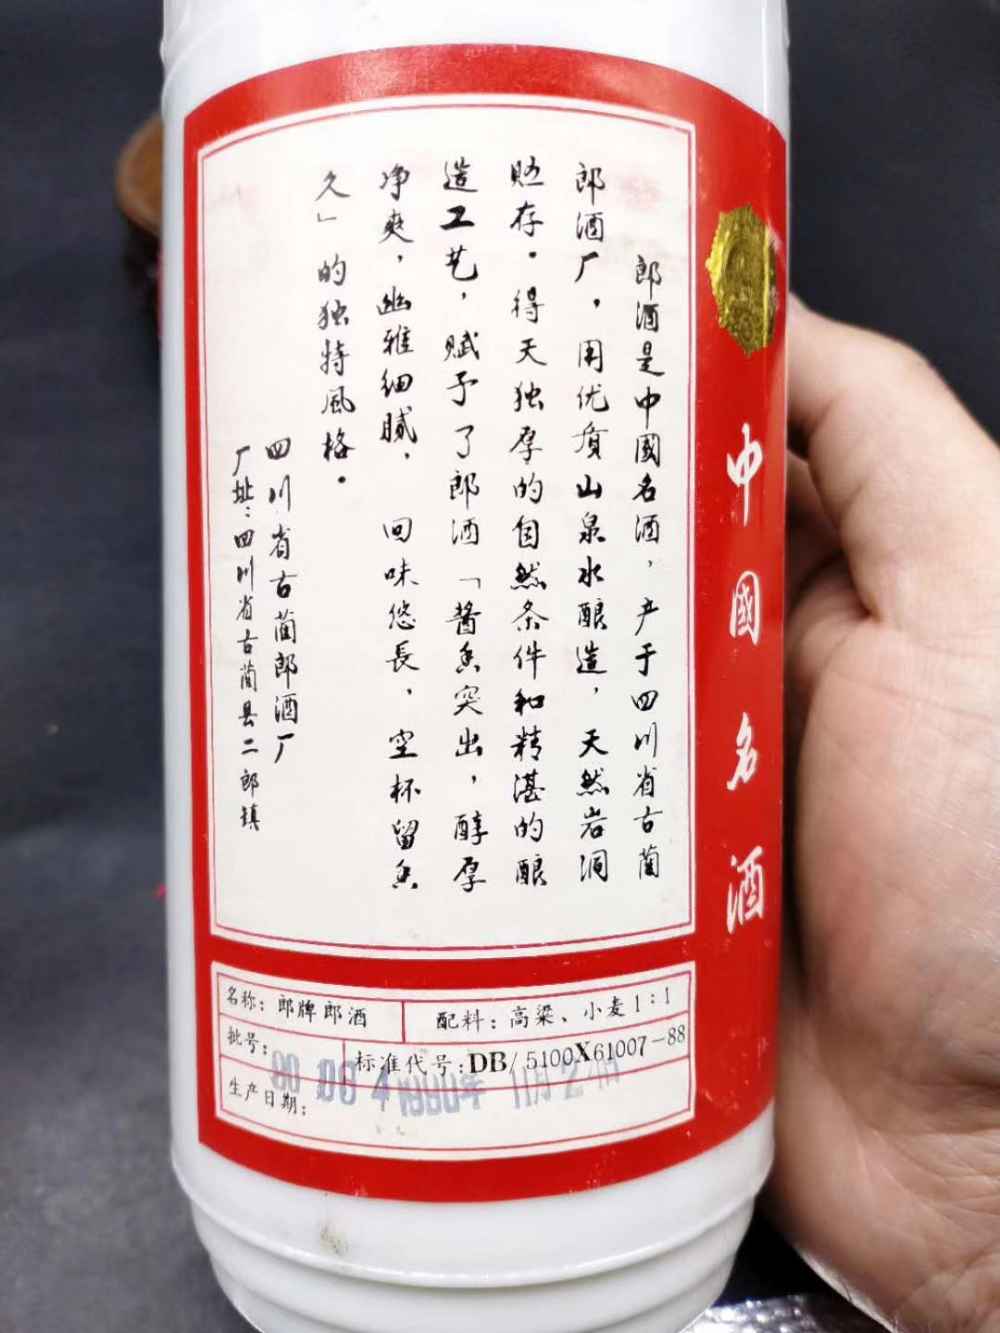 郎酒是中國名酒，产于四川省古蔺
郎酒厂，用优质山泉水酿造，天然岩洞
贮存。得天独厚的自然条件和精湛的酿
造工艺，赋予了郎酒「酱香突出，醇厚
净爽，幽雅细腻，回味悠長，空杯留香
久」的独特風格。
四川省古蔺郎酒厂
厂址：四川省古蔺县二郎镇
中國名酒
名称：郎牌郎酒
配料：高粱、小麦1：1
批号：
标准代号：DB/5100X61007-88
生产日期：
1990年 11月2